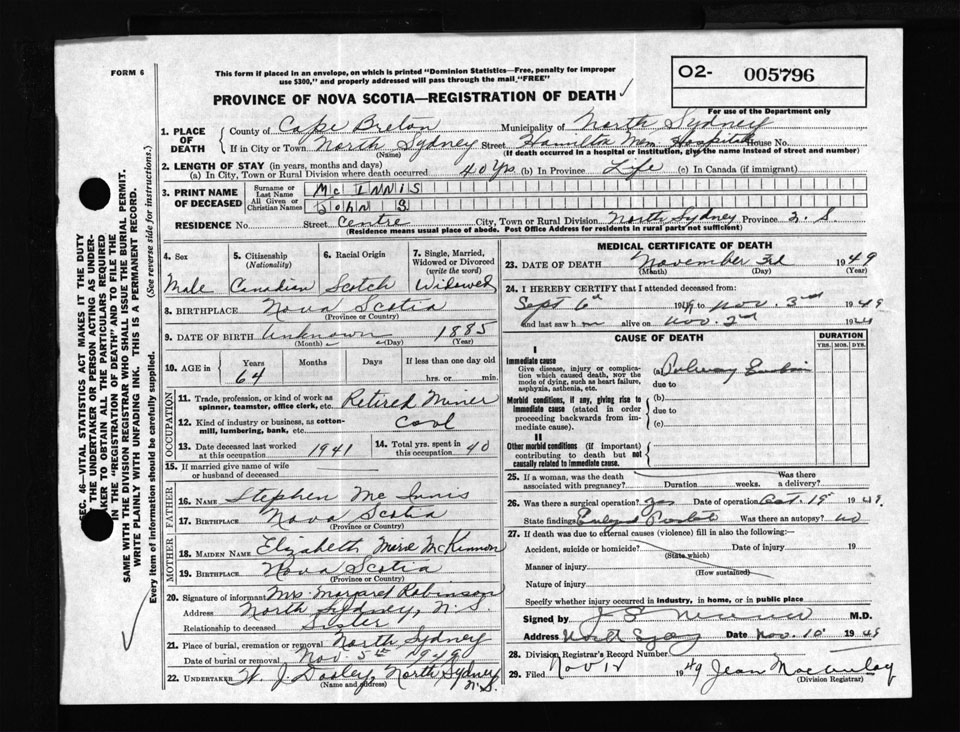 FORM 6
This form if placed in an envelope, on which is printed "Dominion Statistics—Free, penalty for improper
use $300," and properly addressed will pass through the mail "FREE"
O2- 005796
PROVINCE OF NOVA SCOTIA—REGISTRATION OF DEATH
For use of the Department only
1. PLACE OF DEATH
County of Cape Breton Municipality of North Sydney
If in City or Town North Sydney Street Hamilton Mem Hospital House No.
(Name) (If death occurred in a hospital or institution, give the name instead of street and number)
2. LENGTH OF STAY (in years, months and days)
(a) In City, Town or Rural Division where death occurred 40 Yrs (b) In Province Life (c) In Canada (if immigrant)
3. PRINT NAME OF DECEASED
Surname or Last Name McINNIS
All Given or Christian Names JOHN S
RESIDENCE No. Street Centre City, Town or Rural Division North Sydney Province N.S.
(Residence means usual place of abode. Post Office Address for residents in rural parts not sufficient)
4. Sex Male
5. Citizenship (Nationality) Canadian
6. Racial Origin Scotch
7. Single, Married, Widowed or Divorced (write the word) Widowed
8. BIRTHPLACE Nova Scotia
(Province or Country)
9. DATE OF BIRTH Unknown 1885
(Month) (Day) (Year)
10. AGE in Years 64 Months Days If less than one day old
hrs. or min.
OCCUPATION
11. Trade, profession, or kind of work as
spinner, teamster, office clerk, etc. Retired Miner
12. Kind of industry or business, as cotton-
mill, lumbering, bank, etc. Coal
13. Date deceased last worked
at this occupation 1941
14. Total yrs. spent in
this occupation 40
15. If married give name of wife
or husband of deceased
FATHER
16. NAME Stephen McInnis
17. BIRTHPLACE Nova Scotia
(Province or Country)
MOTHER
18. MAIDEN NAME Elizabeth McKinnon
19. BIRTHPLACE Nova Scotia
(Province or Country)
20. Signature of informant Mrs. Margaret Robinson
Address North Sydney, N.S.
Relationship to deceased Sister
21. Place of burial, cremation or removal North Sydney
Date of burial or removal Nov. 5th 1949
22. UNDERTAKER W. J. Dooley, North Sydney N.S.
(Name and address)
MEDICAL CERTIFICATE OF DEATH
23. DATE OF DEATH November 3rd 1949
(Month) (Day) (Year)
24. I HEREBY CERTIFY that I attended deceased from:
Sept 6th 1949 to Nov. 3rd 1949
and last saw h m alive on Nov. 2nd 19
CAUSE OF DEATH
DURATION
YRS. MOS. DYS.
I
Immediate cause
Give disease, injury or complica-
tion which caused death, not the
mode of dying, such as heart failure,
asphyxia, asthenia, etc.
(a) Pulmonary Embolism
due to
Morbid conditions, if any, giving rise to
immediate cause (stated in order
proceeding backwards from im-
mediate cause).
(b)
due to
(c)
II
Other morbid conditions (if important)
contributing to death but not
causally related to immediate cause.
25. If a woman, was the death
associated with pregnancy? Duration weeks. Was there
a delivery?
26. Was there a surgical operation? yes Date of operation Oct. 19 1949
State findings Enlarged Prostate Was there an autopsy? no
27. If death was due to external causes (violence) fill in also the following:
Accident, suicide or homicide? Date of injury 19
(State which)
Manner of injury
(How sustained)
Nature of injury
Specify whether injury occurred in industry, in home, or in public place
Signed by M.D.
Address North Sydney Date Nov. 10 1949
28. Division Registrar's Record Number
29. Filed Nov 12 1949 Jean Macaulay
(Division Registrar)
SEC. 46—VITAL STATISTICS ACT MAKES IT THE DUTY
OF THE UNDERTAKER OR PERSON ACTING AS UNDER-
TAKER TO OBTAIN ALL THE PARTICULARS REQUIRED
IN THE "REGISTRATION OF DEATH" AND TO FILE THE
SAME WITH THE DIVISION REGISTRAR WHO SHALL ISSUE THE BURIAL PERMIT.
WRITE PLAINLY WITH UNFADING INK. THIS IS A PERMANENT RECORD.
Every item of information should be carefully supplied. (See reverse side for instructions.)